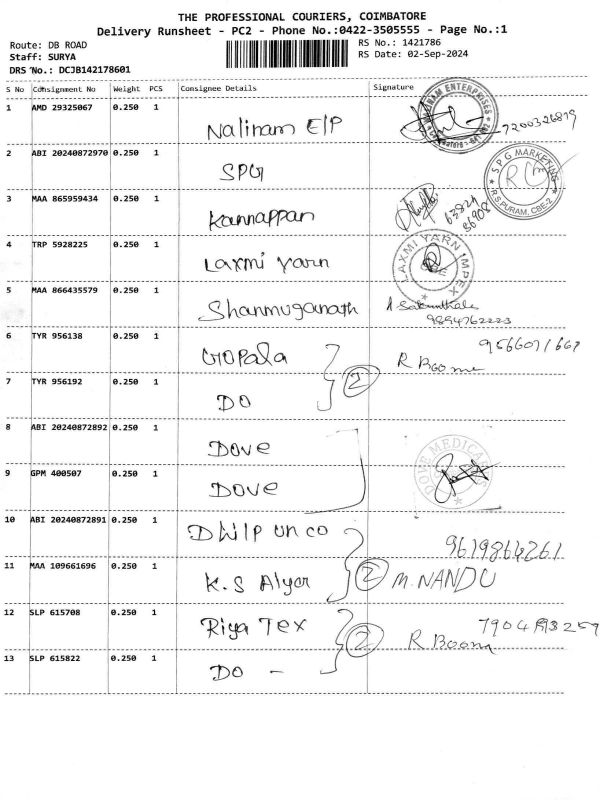 THE PROFESSIONAL COURIERS, COIMBATORE
Delivery Runsheet - PC2 - Phone No.:0422-3505555 - Page No.:1
Route: DB ROAD
Staff: SURYA
DRS No.: DCJB142178601
RS No.: 1421786
RS Date: 02-Sep-2024
S No Consignment No Weight PCS Consignee Details Signature
1 AMD 29325067 0.250 1 Nalinam E/P ENTERPRISES 7200326879
2 ABI 20240872970 0.250 1 SPG SPG MARKETING R.S.PURAM, CBE-2
3 MAA 865959434 0.250 1 Kannappan 63824 86908
4 TRP 5928225 0.250 1 Laxmi Yarn LAXMI YARN IMPEX CBE
5 MAA 866435579 0.250 1 Shanmuganath A Sakunthala 9894762223
6 TYR 956138 0.250 1 Gopala 9566071667
7 TYR 956192 0.250 1 DO 2 R Booma
8 ABI 20240872892 0.250 1 Dove
9 GPM 400507 0.250 1 Dove DOVE MEDICALS
10 ABI 20240872891 0.250 1 Dhilp un co 9619864261
11 MAA 109661696 0.250 1 K.S Aiyar 2 M.NANDU
12 SLP 615708 0.250 1 Riya Tex
13 SLP 615822 0.250 1 DO - 2 R Booma